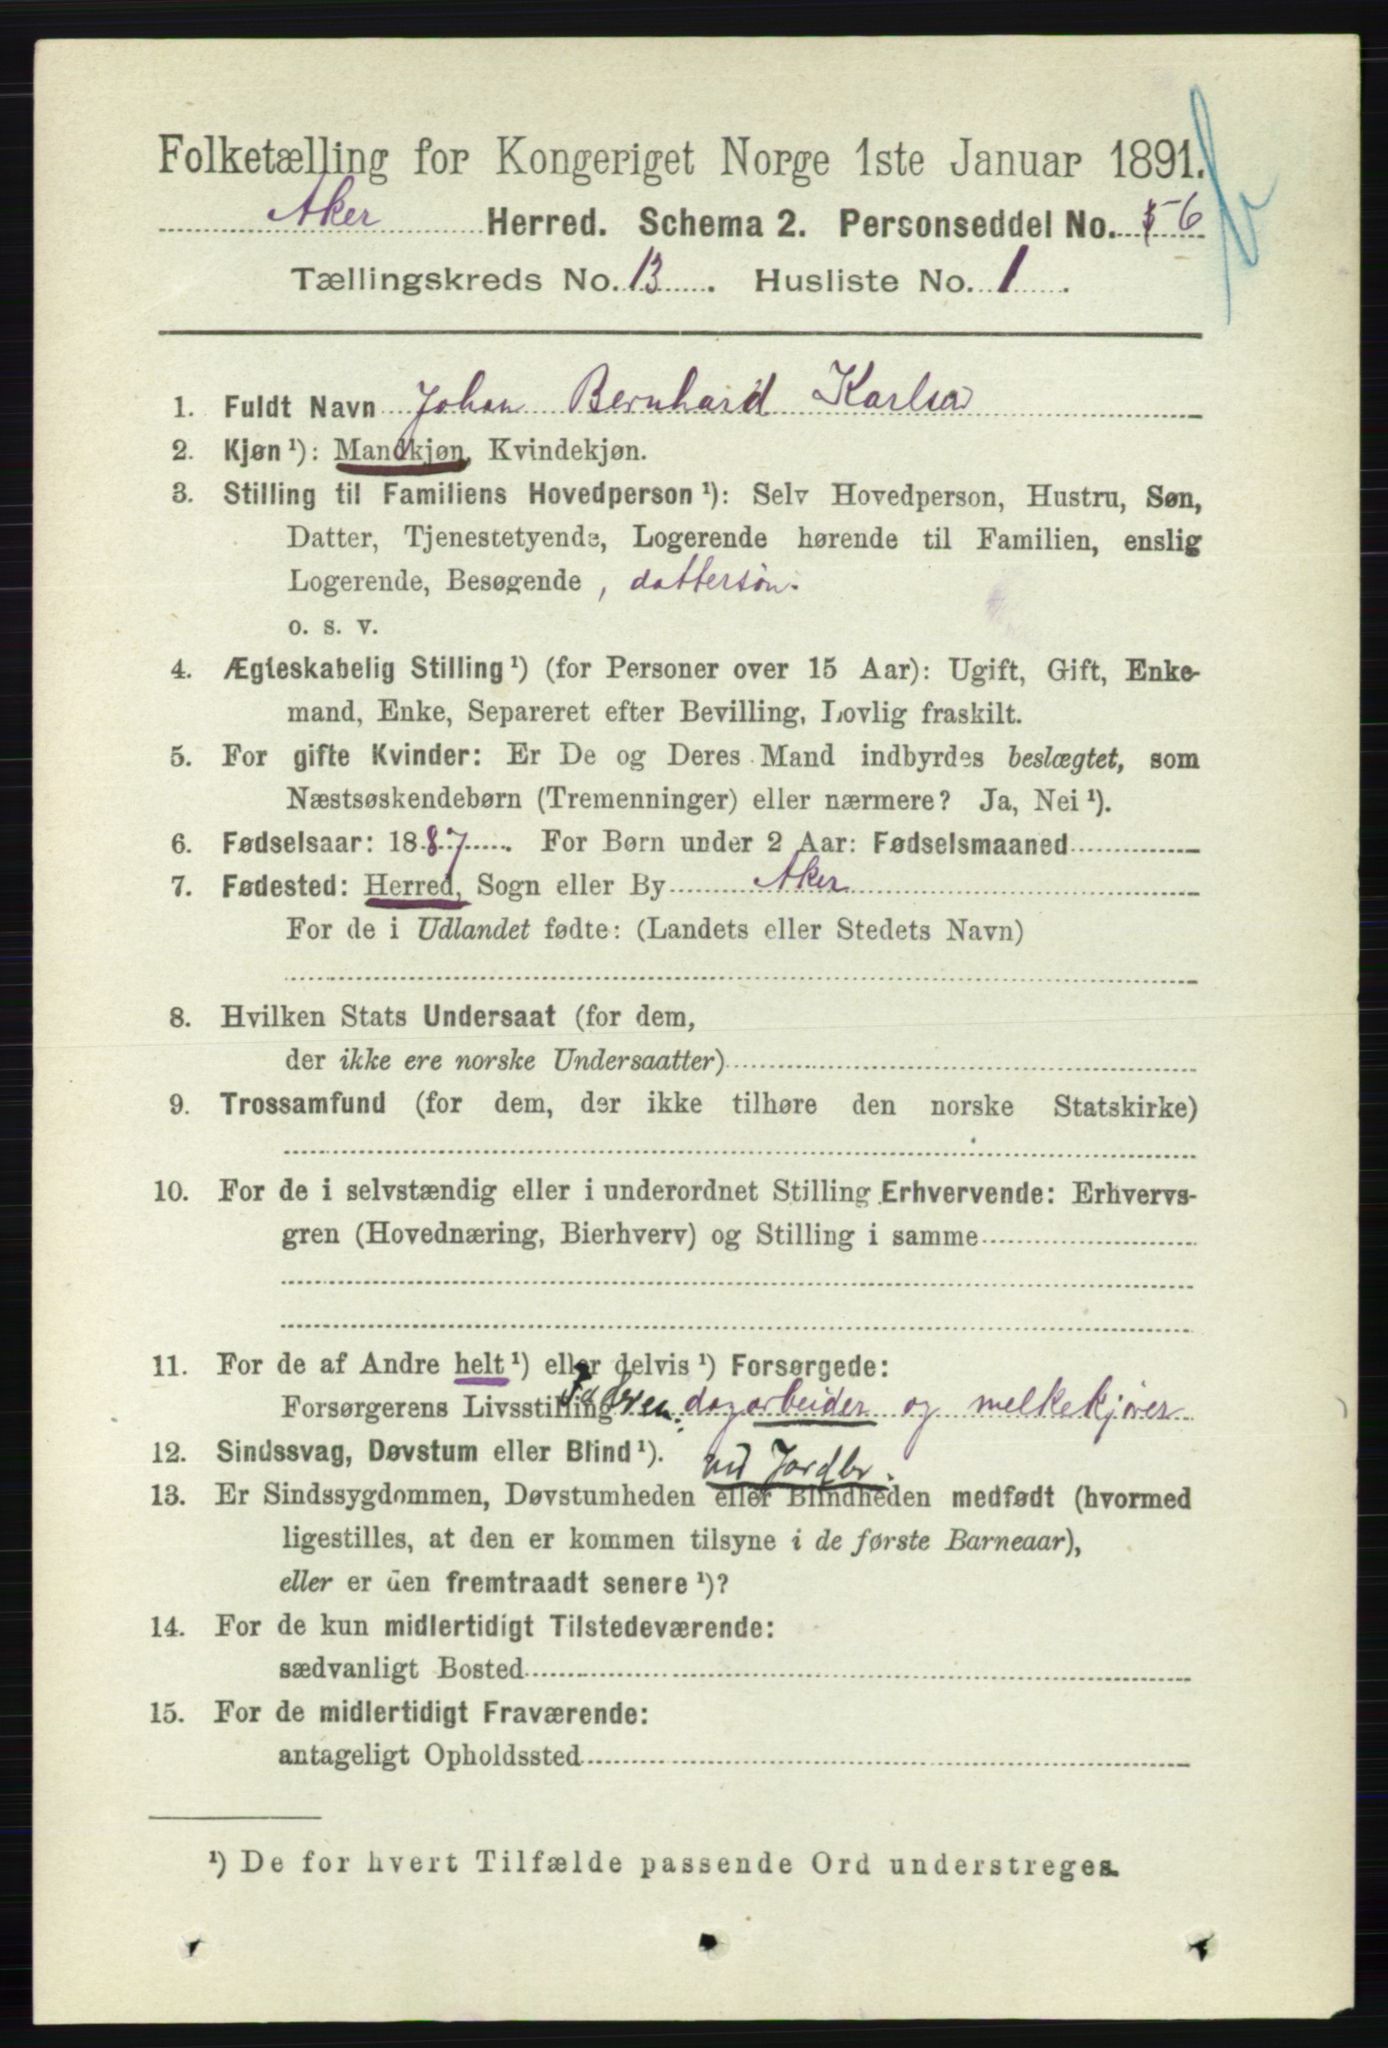 Folketælling for Kongeriget Norge 1ste Januar 1891.
Aker Herred. Schema 2. Personseddel No. 56
Tællingskreds No. 13. Husliste No. 1.
1. Fuldt Navn Johan Bernhard
2. Kjøn ¹): Mandkjøn, Kvindekjøn.
3. Stilling til Familiens Hovedperson ¹): Selv Hovedperson, Hustru, Søn,
Datter, Tjenestetyende, Logerende hørende til Familien, enslig
Logerende, Besøgende , dattersøn.
o. s. v.
4. Ægteskabelig Stilling ¹) (for Personer over 15 Aar): Ugift, Gift, Enke-
mand, Enke, Separeret efter Bevilling, Lovlig fraskilt.
5. For gifte Kvinder: Er De og Deres Mand indbyrdes beslægtet, som
Næstsøskendebørn (Tremenninger) eller nærmere? Ja, Nei ¹).
6. Fødselsaar: 1887. For Børn under 2 Aar: Fødselsmaaned
7. Fødested: Herred, Sogn eller By Aker
For de i Udlandet fødte: (Landets eller Stedets Navn)
8. Hvilken Stats Undersaat (for dem,
der ikke ere norske Undersaatter)
9. Trossamfund (for dem, der ikke tilhøre den norske Statskirke)
10. For de i selvstændig eller i underordnet Stilling Erhvervende: Erhvervs-
gren (Hovednæring, Bierhverv) og Stilling i samme
11. For de af Andre helt ¹) eller delvis ¹) Forsørgede:
Forsørgerens Livsstilling Faderen: dagarbeider og melkekjører
12. Sindssvag, Døvstum eller Blind ¹). ved Jordbr.
13. Er Sindssygdommen, Døvstumheden eller Blindheden medfødt (hvormed
ligestilles, at den er kommen tilsyne i de første Barneaar),
eller er den fremtraadt senere ¹)?
14. For de kun midlertidigt Tilstedeværende:
sædvanligt Bosted
15. For de midlertidigt Fraværende:
antageligt Opholdssted
¹) De for hvert Tilfælde passende Ord understreges.